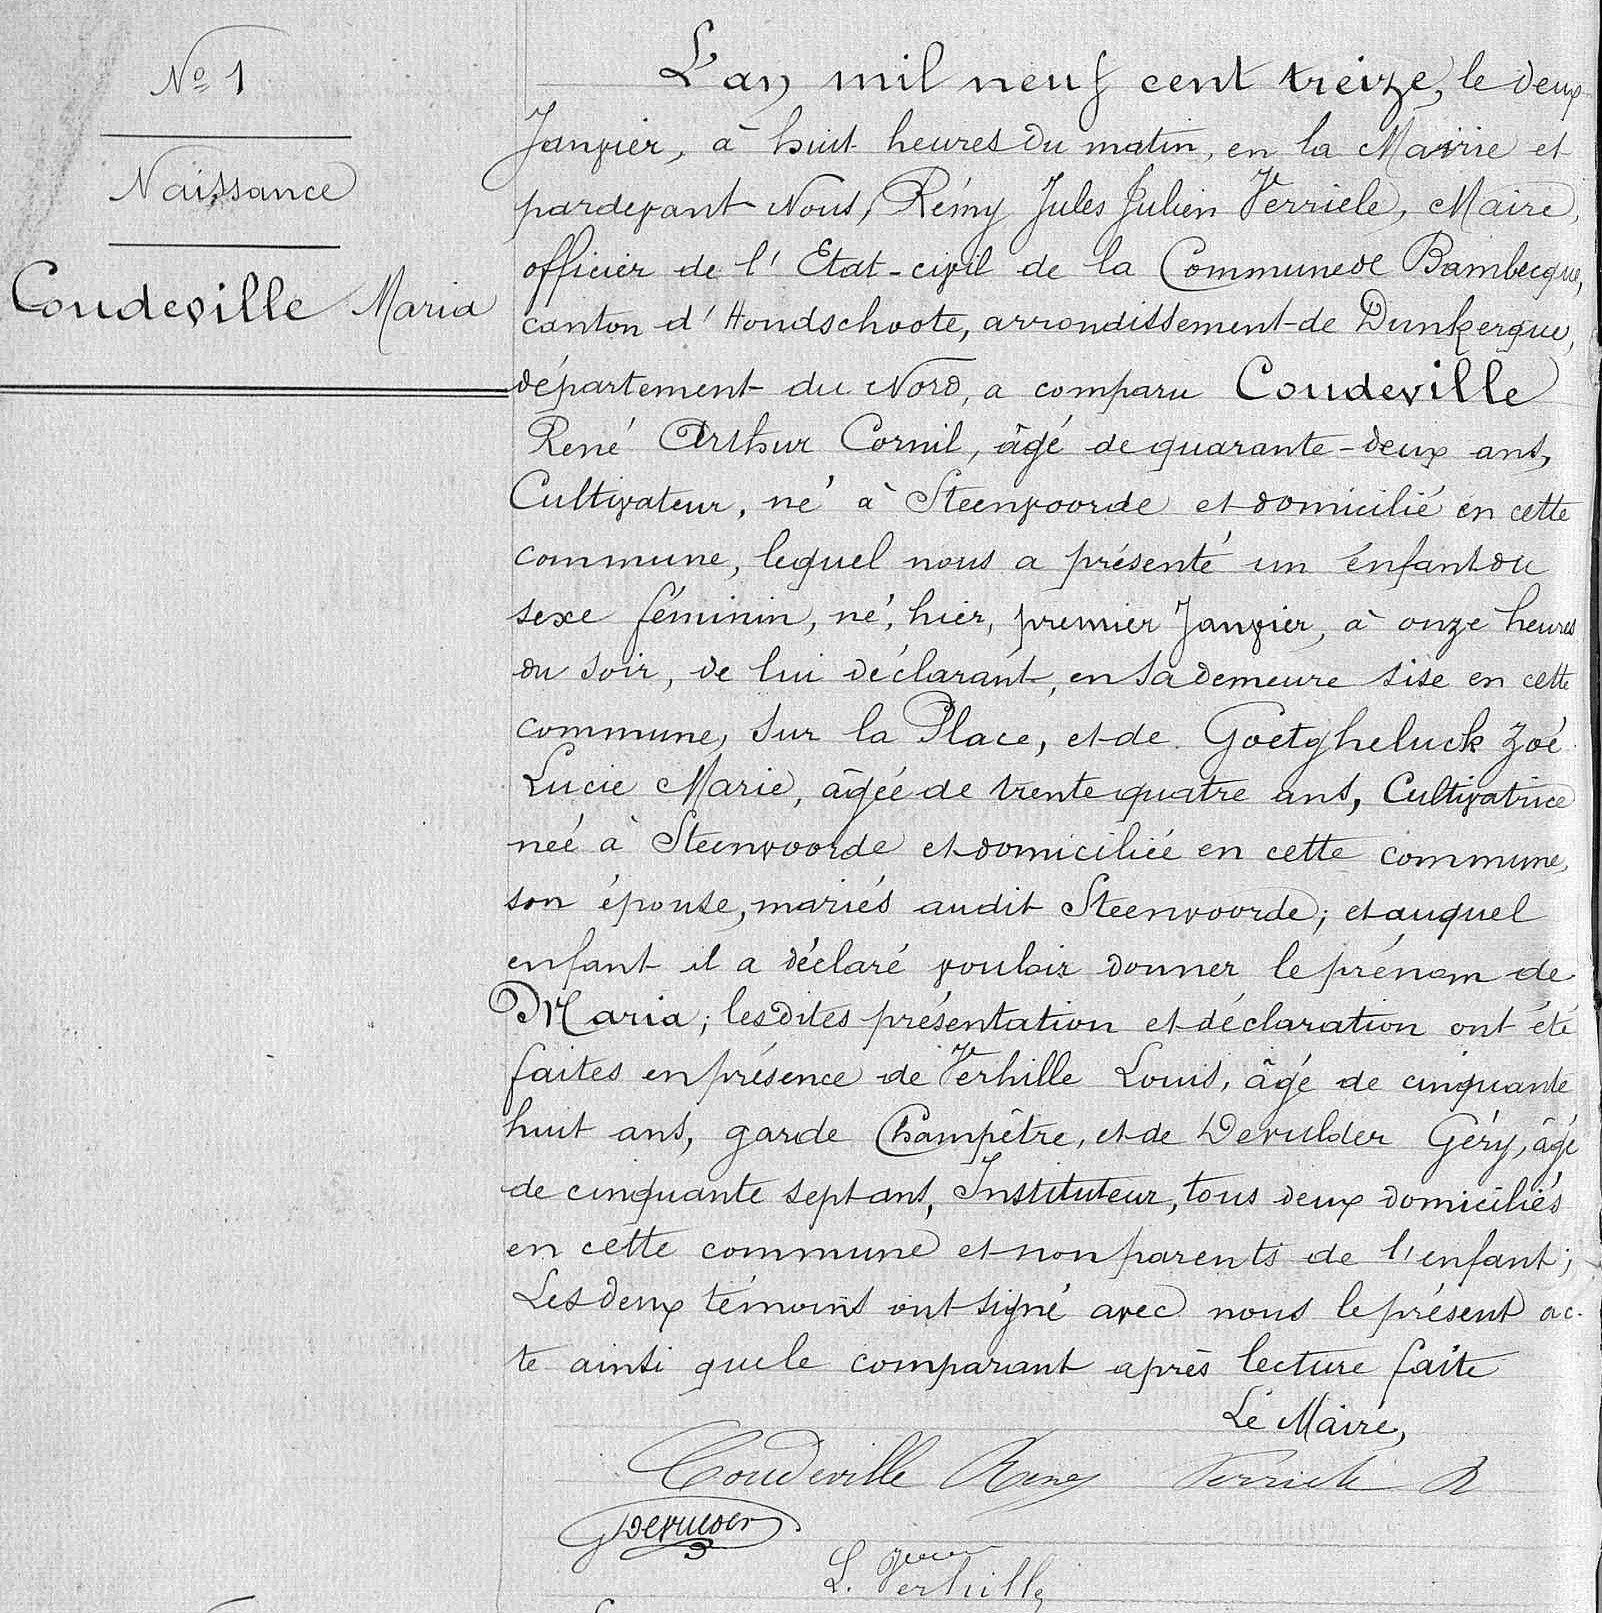 Nº 1
Naissance
Coudeville Maria
L'an mil neuf cent treize, le deux
Janvier, à huit heures du matin, en la Mairie et
pardevant Nous, Rémy Jules Julien Verriele, Maire,
officier de l'Etat-civil de la Commune de Bambecque,
canton d'Hondschoote, arrondissement de Dunkerque,
département du Nord, a comparu Coudeville
René Arthur Cornil, âgé de quarante-deux ans,
Cultivateur, né à Steenvoorde et domicilié en cette
commune, lequel nous a présenté un énfant du
sexe féminin, né, hier, premier Janvier, à onze heures
du soir, de lui déclarant, en sa demeure sise en cette
commune, sur la Place, et de Goetgheluck Zoé
Lucie Marie, âgée de trente quatre ans, Cultivatrice
née à Steenvoorde et domiciliée en cette commune,
son épouse, mariés audit Steenvoorde; et auquel
enfant il a déclaré vouloir donner le prénom de
Maria; lesdites présentation et déclaration ont été
faites en présence de Verhille Louis, âgé de cinquante
huit ans, garde Champêtre, et de Devulder Géry, âgé
de cinquante sept ans, Instituteur, tous deux domiciliés
en cette commune et non parents de l'enfant;
Les deux témoins ont signé avec nous le présent ac-
te ainsi que le comparant après lecture faite
Le Maire,
Coudeville René Verriele R
G Devulder
L. Verhille